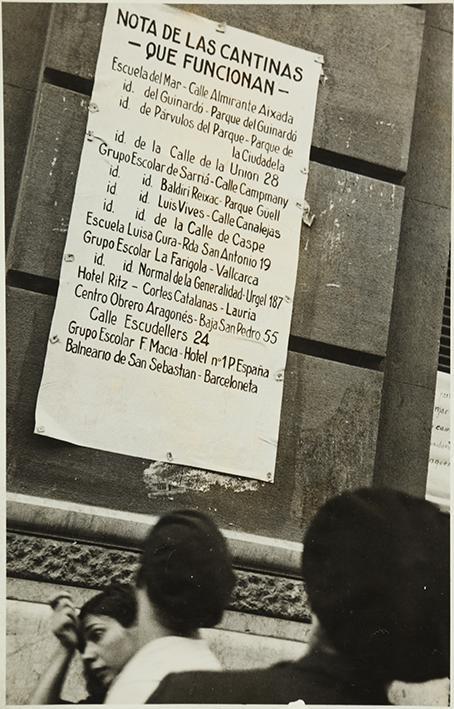 NOTA DE LAS CANTINAS
— QUE FUNCIONAN —
Escuela del Mar - Calle Almirante Aixada
id. del Guinardó - Parque del Guinardó
id. de Párvulos del Parque - Parque de
la Ciudadela
id. de la Calle de la Union 28
Grupo Escolar de Sarriá - Calle Campmany
id. id. Baldiri Reixac - Parque Güell
id id. Luis Vives - Calle Canalejas
id. id. de la Calle de Caspe
Escuela Luisa Cura - Rda San Antonio 19
Grupo Escolar La Farigola - Vallcarca
id. id Normal de la Generalidad - Urgel 187
Hotel Ritz - Cortes Catalanas - Lauria
Centro Obrero Aragonés - Baja San Pedro 55
Calle Escudellers 24
Grupo Escolar F Macia - Hotel nº 1 P España
Balneario de San Sebastian - Barceloneta